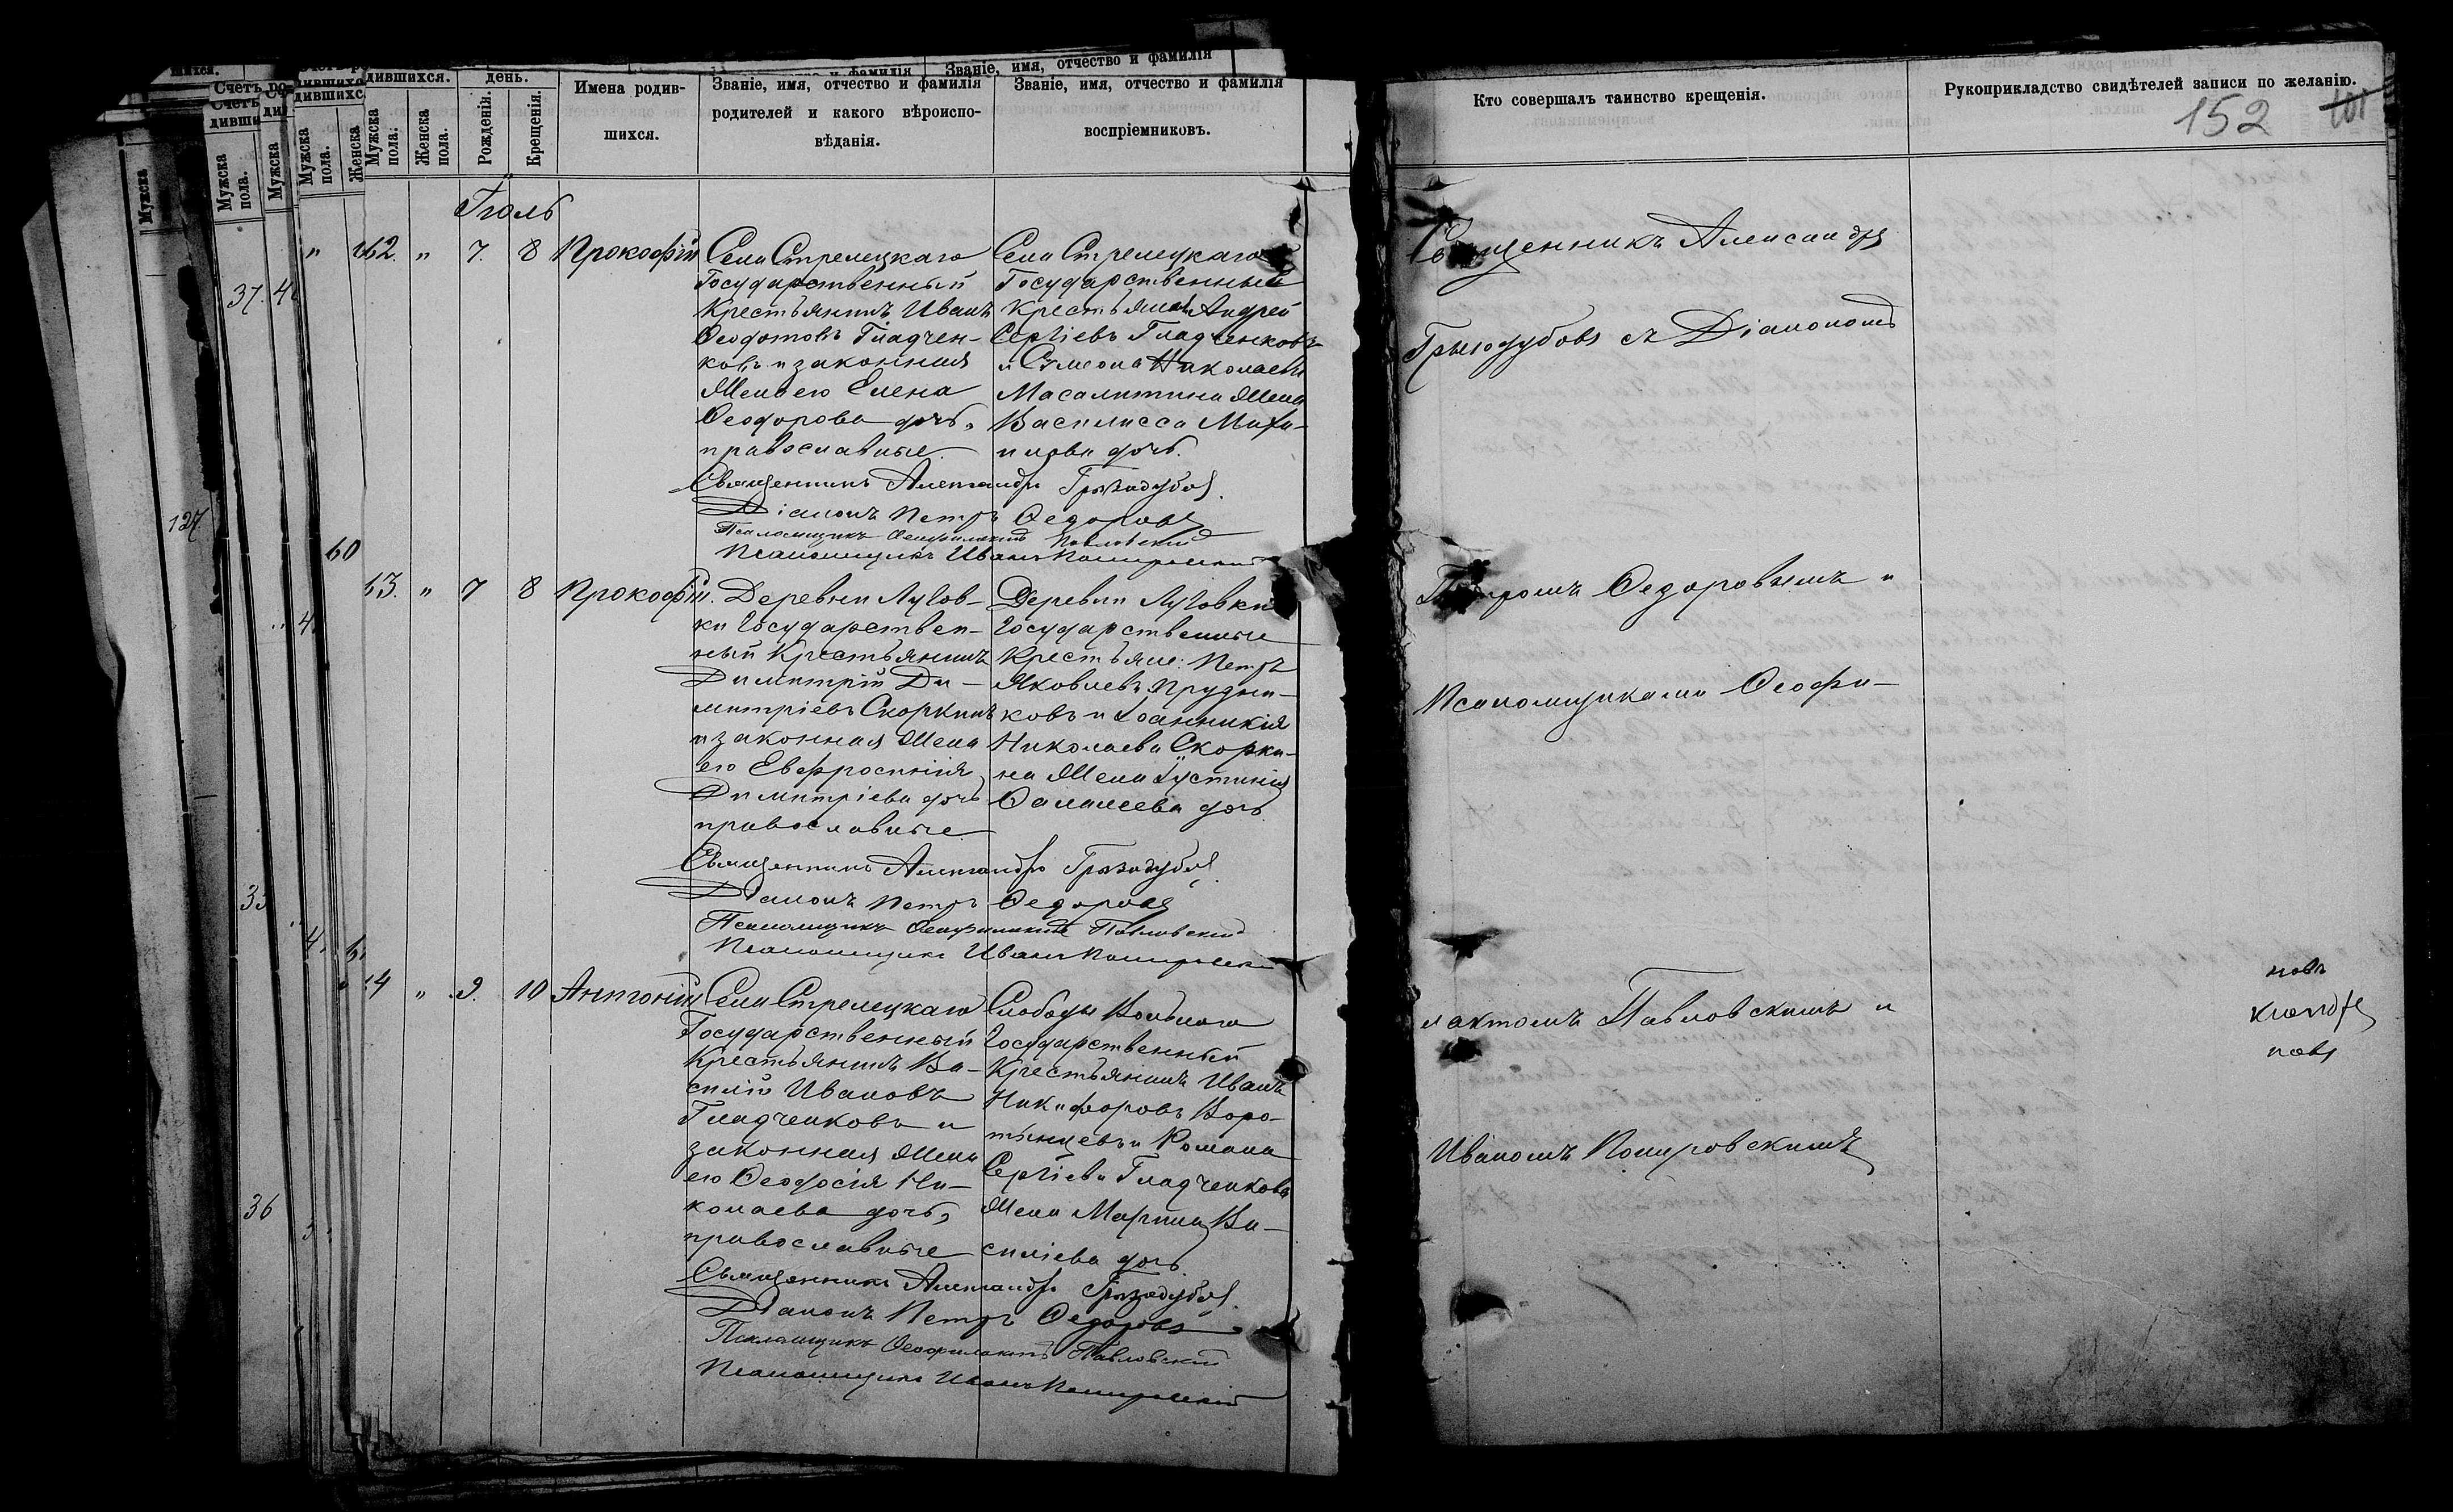 дившихся.
день.
Мужска пола.
Женска пола.
Рожденія.
Крещенія.
Имена родив-
шихся.
Званіе, имя, отчество и фамилія
родителей и какого вѣроиспо-
вѣданія.
Званіе, имя, отчество и фамилія
воспріемниковъ.
Кто совершалъ таинство крещенія.
Рукоприкладство свидѣтелей записи по желанію.
152
Іюль
62. " 7. 8 Прокофій
Села Стрелецкаго
Государственный
Крестьянинъ Иванъ
Ѳеодотовъ Гладчен-
ковъ и законная
Жена его Елена
Ѳеодорова дочь,
православные.
Села Стрелецкаго
Государственный
Крестьянинъ Андрей
Сергіевъ Гладченковъ
и Сѵмеона Николаева
Масалитина Жена
Василисса Михаи-
лова дочь.
Священникъ Александръ Грызодубовъ
Діаконъ Петръ Ѳедоровъ
Псаломщикъ Ѳеофилактъ Павловскій
Псаломщикъ Иванъ Покировскій
63. " 7 8 Прокофій.
Деревни Лутов-
ки Государствен-
ный Крестьянинъ
Димитрій Ди-
митріевъ Скоркинъ
и законная Жена
его Евфросинія
Димитріева дочь
православные
Деревни Лутовки
Государственные
Крестьяне: Петръ
Яковлевъ Прудни-
ковъ и Іоанникія
Николаева Скорки-
на Жена Іустинія
Ѳалалеева дочь
Священникъ Александръ Грызодубовъ
Діаконъ Петръ Ѳедоровъ
Псаломщикъ Ѳеофилактъ Павловскій
Псаломщикъ Иванъ Покировскій
64 " 9. 10 Антоній
Села Стрелецкаго
Государственный
Крестьянинъ Ва-
силій Ивановъ
Гладченковъ и
законная Жена
его Ѳеодосія Ни-
колаева дочь,
православные
Слободы Вольнаго
Государственный
Крестьянинъ Иванъ
Никифоровъ Воро-
тынцевъ и Романа
Сергіева Гладченкова
Жена Марина Ва-
силіева дочь
Священникъ Александръ Грызодубовъ
Діаконъ Петръ Ѳедоровъ
Псаломщикъ Ѳеофилактъ Павловскій
Псаломщикъ Иванъ Покировскій
Священникъ Александръ
Грызодубовъ съ Діакономъ
Петромъ Ѳедоровымъ и
Псаломщиками Ѳеофи-
лактомъ Павловскимъ и
Иваномъ Покировскимъ
37.
127
60
36